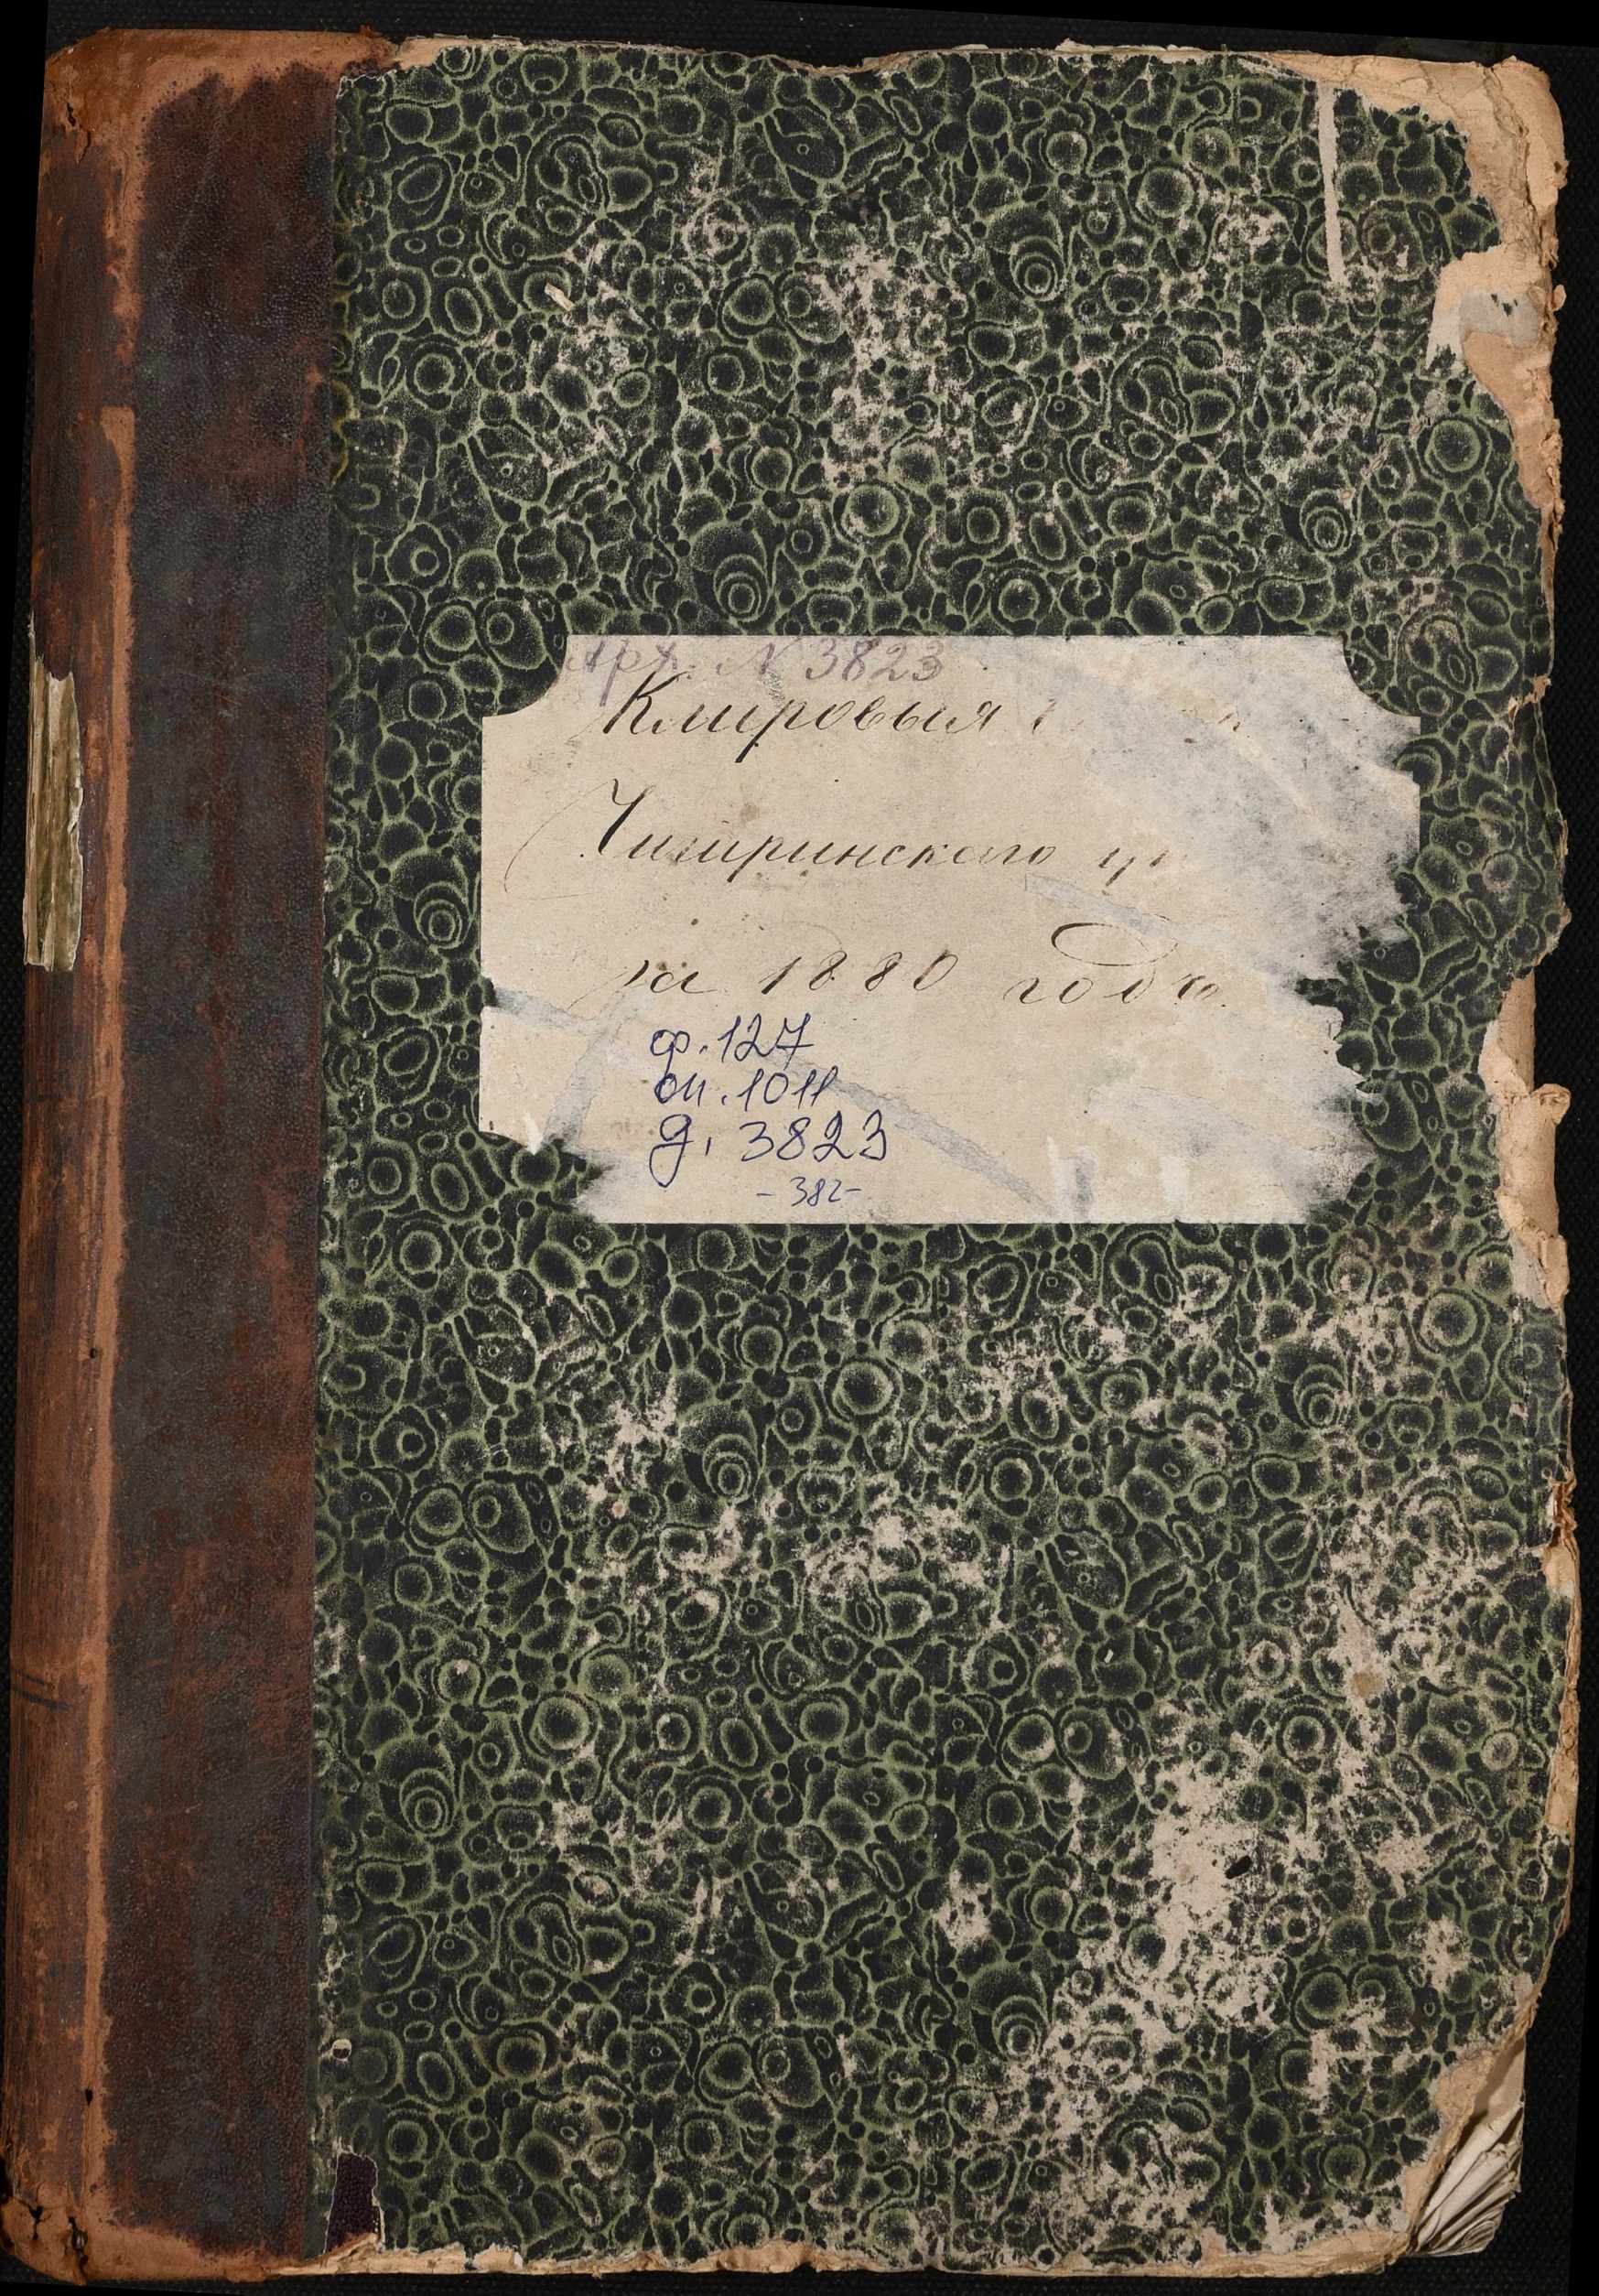 Арх. N 3823
Клировыя
Чигиринскаго
за 1880 годъ.
ф. 127
оп. 1011
д. 3823
- 382 -